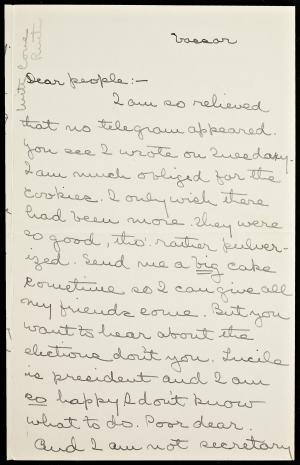 Vassar
Dear people:-
I am so relieved
that no telegram appeared.
You see I wrote on Tuesday.
I am much obliged for the
cookies. I only wish there
had been more. They were
so good, tho' rather pulver-
ized. Send me a big cake
sometime so I can give all
my friends some. But you
want to hear about the
elections don't you. Lucile
is president and I am
so happy I don't know
what to do. Poor dear.
And I am not secretary
With love
Ruth